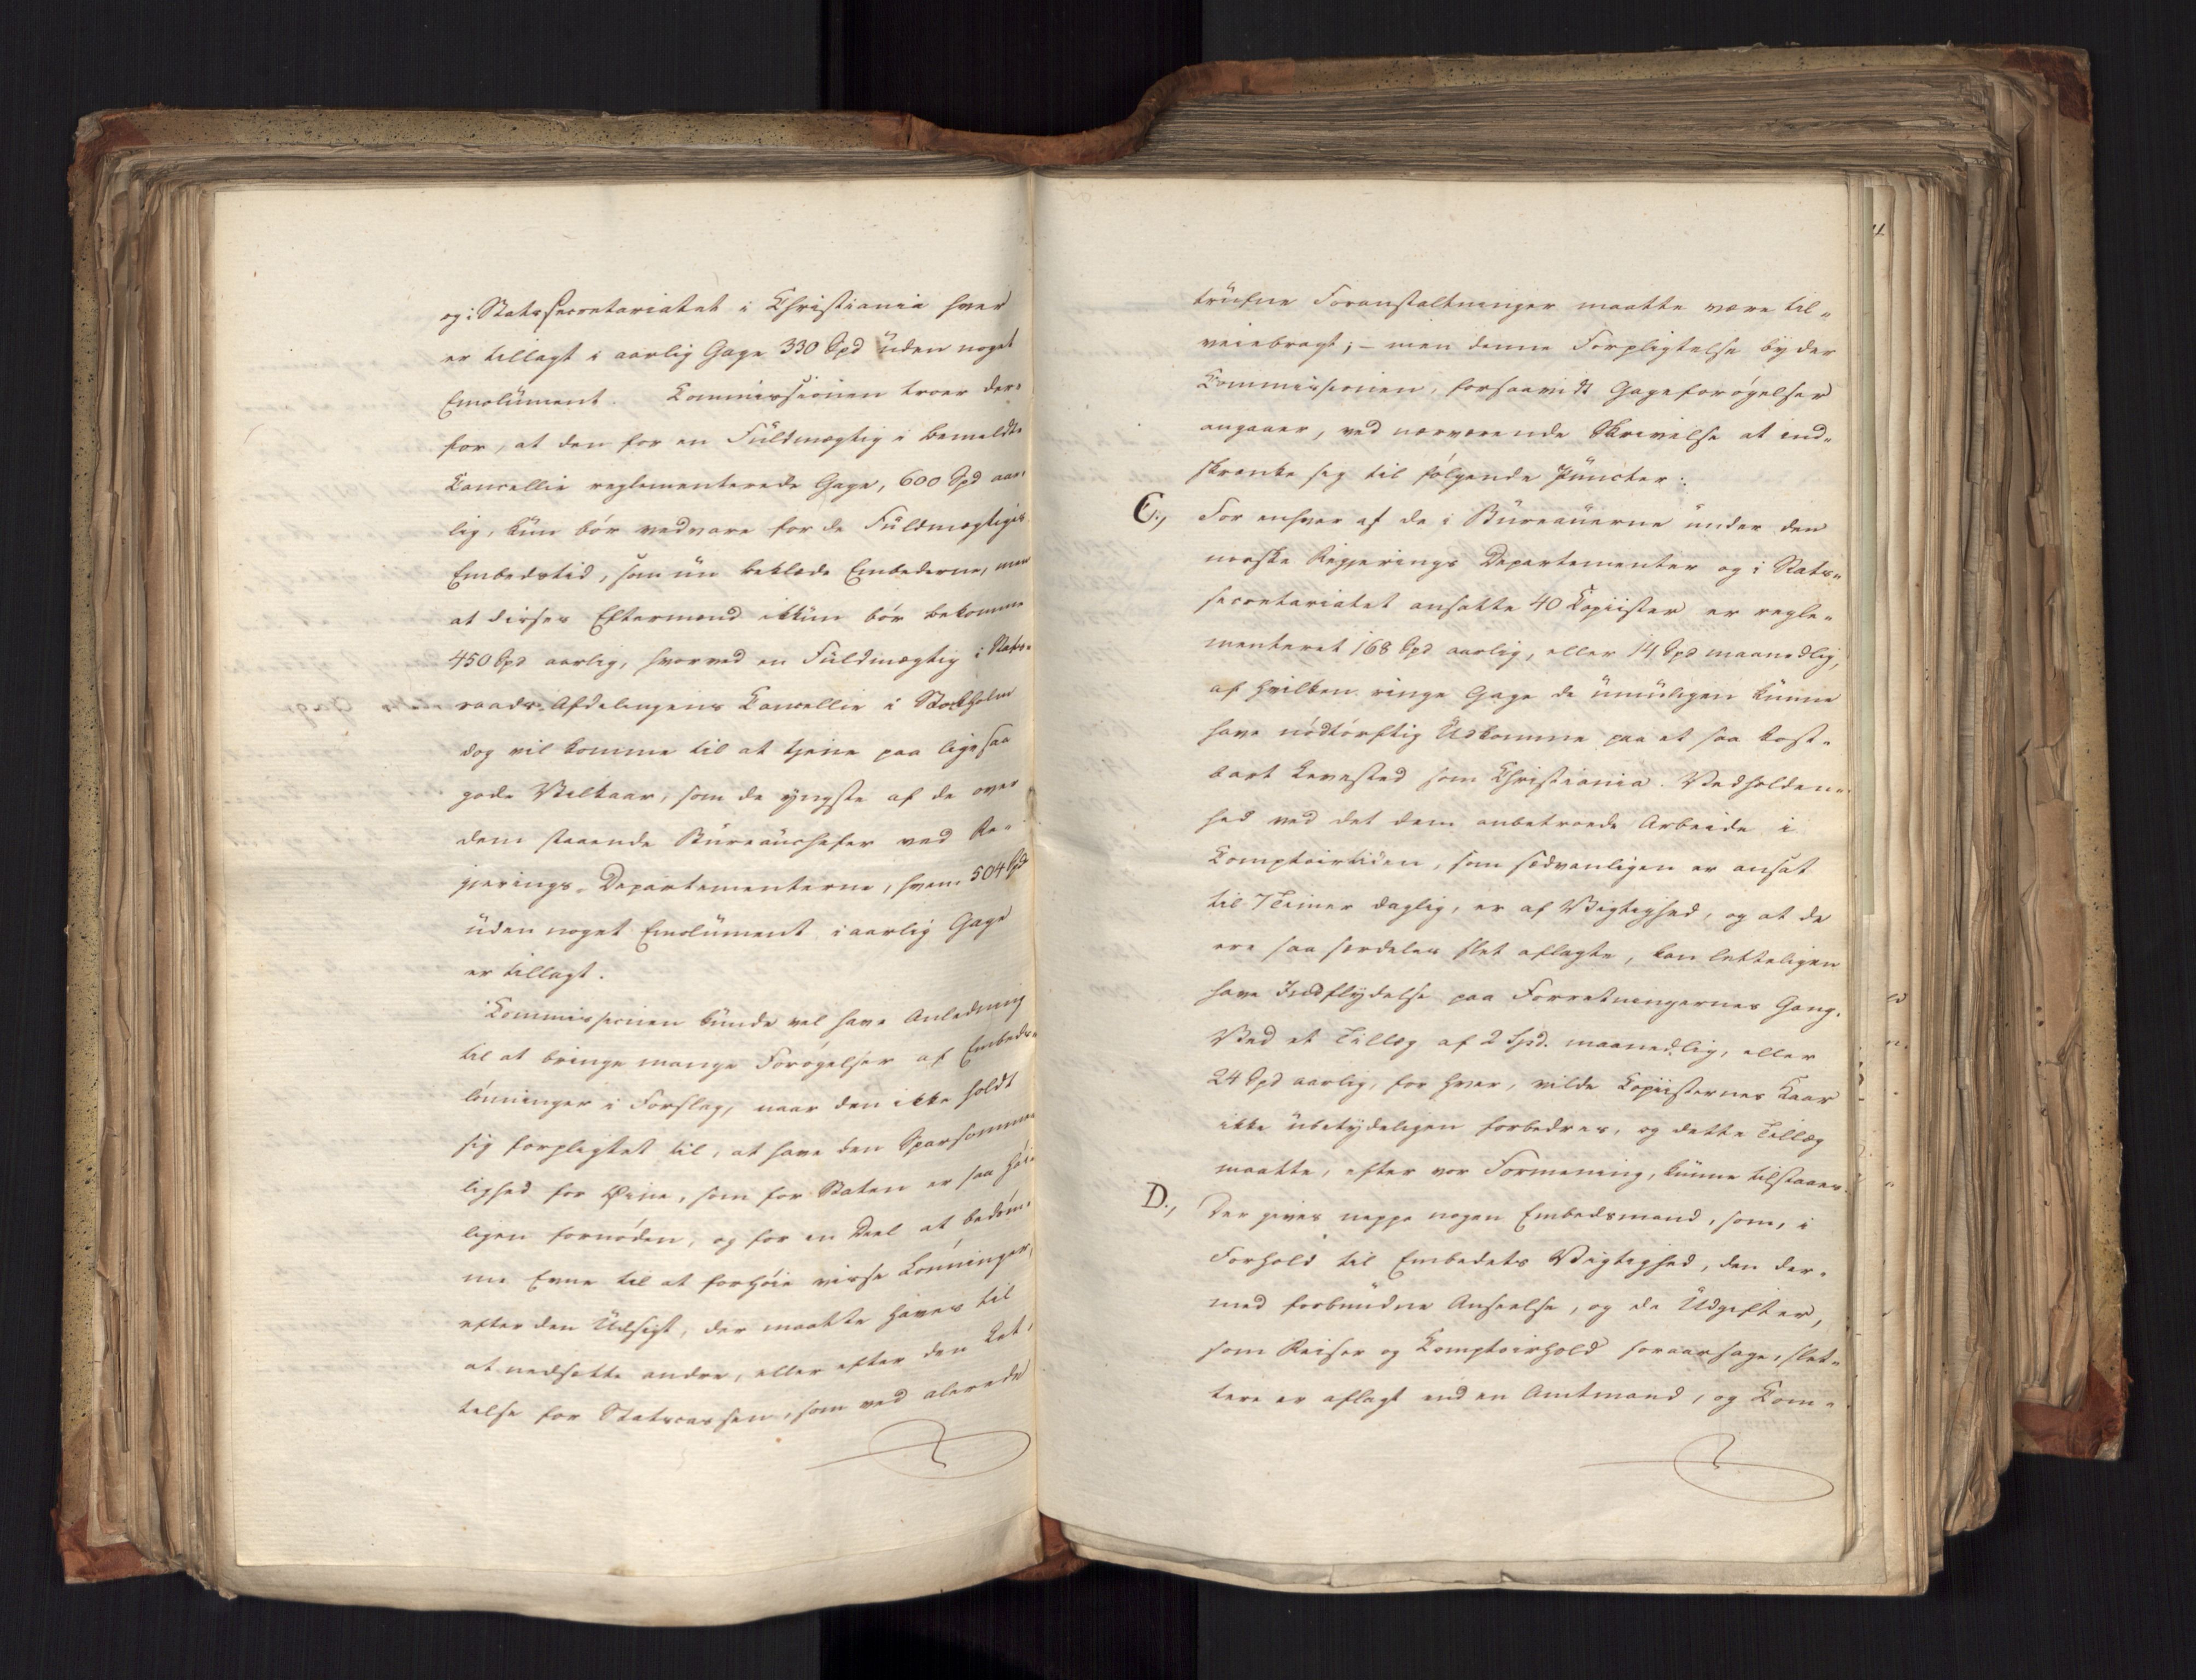 og i Statssecretariatet i Christiania hver
er tillagt i aarlig Gage 330 Spd uden noget
Emolument. Commissionen troer der-
for, at den for en Fuldmægtig i bemeldte
Cancellie reglementerede Gage, 600 Spd aar-
lig, kun bör vedvare for de Fuldmægtiges
Embedstid, som nu beklæde Embederne, men
at disses Eftermænd ikkun bör bekomme
450 Spd aarlig, hvorved en Fuldmægtig i Stats-
raads-Afdelingens Cancellie i Stockholm
dog vil komme til at tjene paa ligesaa
gode Vilkaar, som de yngste af de over
dem staaende Bureauchefer ved Re-
gjerings-Departementerne, hvem 504 Spd
uden noget Emolument i aarlig Gage
er tillagt.
Commissionen kunde vel have Anledning
til at bringe mange Forögelser af Embeds-
lönninger i Forslag, naar den ikke holdt
sig forpligtet til, at have den Sparsomme-
lighed for Øine, som for Staten er saa höi-
ligen fornöden, og for en Deel at bedöm-
me Evne til at forhöie visse Lönninger,
efter den Udsigt, der maatte haves til
at nedsætte andre, eller efter den Let-
telse for Statscassen, som ved alerede
trufne Foranstaltninger maatte være til-
veiebragt; - men denne Forpligtelse byder
Commissionen, forsaavidt Gageforögelser
angaaer, ved nærværende Skrivelse at ind-
skrænke sig til fölgende Puncter:
C., For enhver af de i Bureauerne under den
norske Regjerings Departementer og i Stats-
secretariatet ansatte 40 Copiister er regle-
menteret 168 Spd aarlig, eller 14 Spd maanedlig,
af hvilken ringe Gage de umuligen kunne
have nödtörftig Udkomme paa et saa kost-
bart Levested som Christiania. Vedholden-
hed ved det dem anbetroede Arbeide i
Comptoirtiden, som sædvanligen er ansat
til 7 Timer daglig, er af Vigtighed, og at de
ere saa særdeles slet aflagte, kan letteligen
have Indflydelse paa Forretningernes Gang.
Ved et Tillæg af 2 Spd. maanedlig, eller
24 Spd aarlig, for hver, vilde Copiisternes Kaar
ikke ubetydeligen forbedres, og dette Tillæg
maatte, efter vor Formening, kunne tilstaaes.
D., Der gives neppe nogen Embedsmand, som, i
Forhold til Embedets Vigtighed, den der-
med forbundne Anseelse, og de Udgifter,
som Reiser og Comptoirhold foraarsage, slet-
tere er aflagt end en Amtmand, og Com-